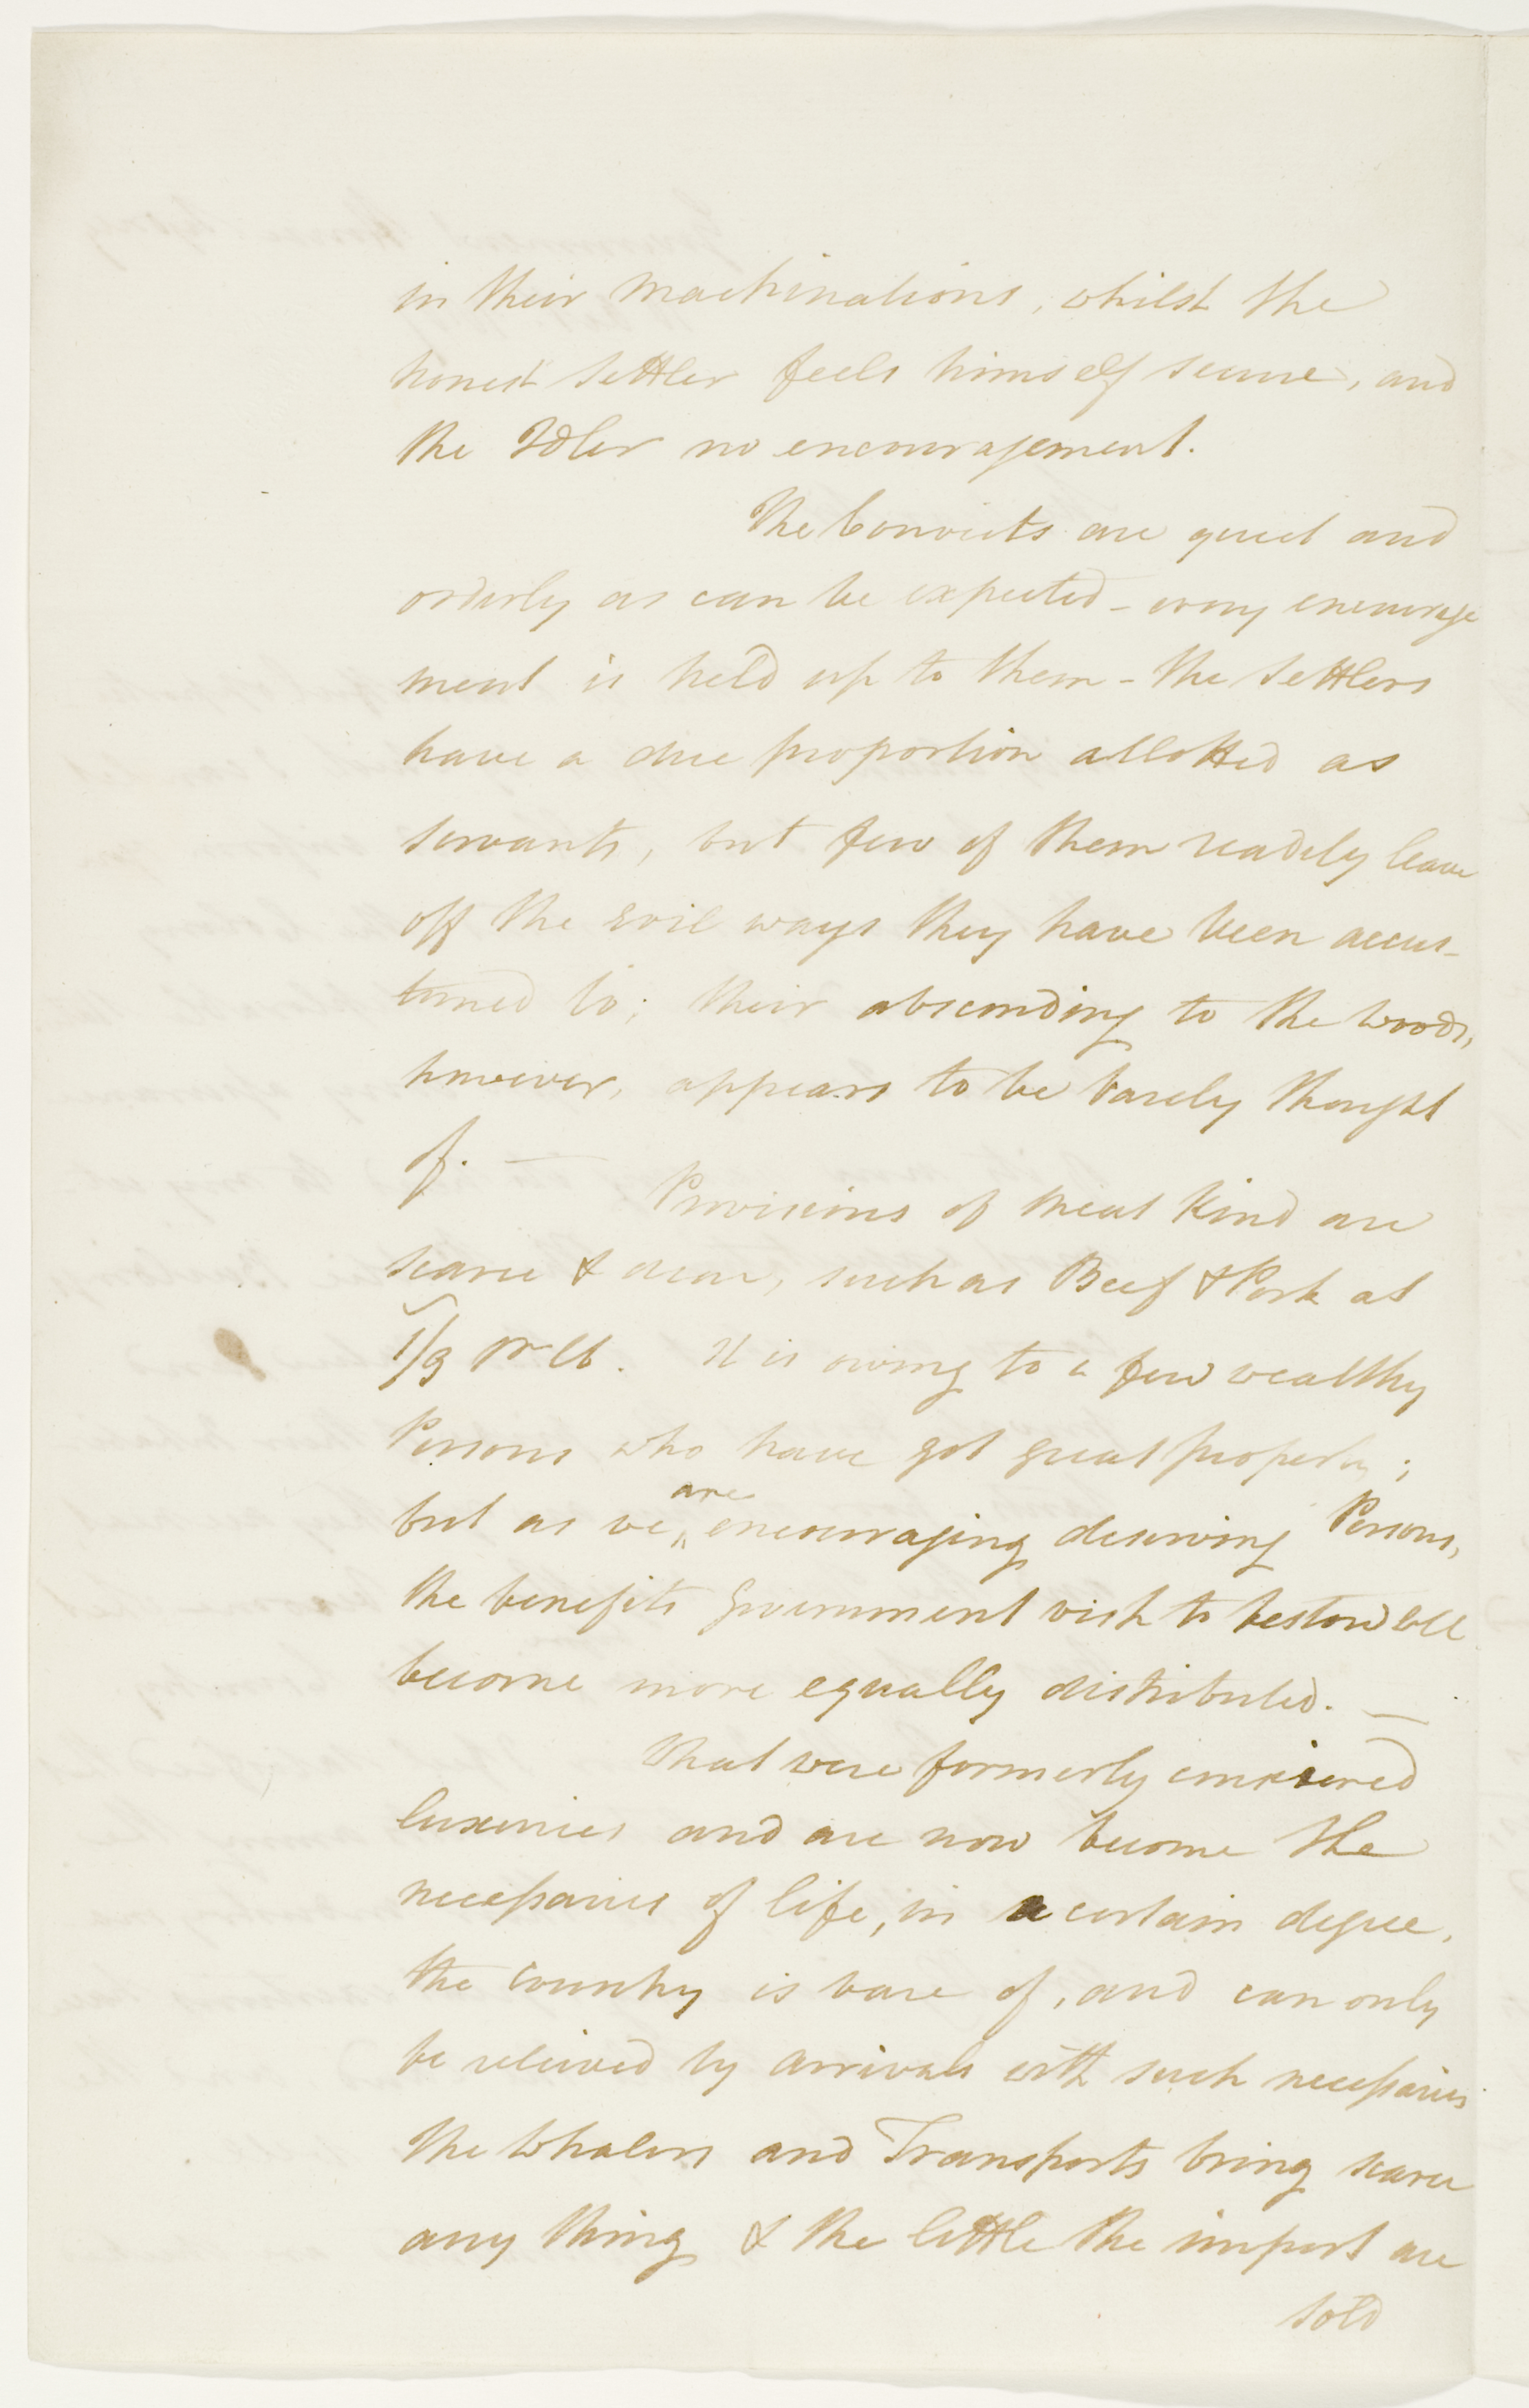 in their machinations, whilst the
honest settler feels himself secure, and
the Idler no encouragement.
The Convicts are quiet and
orderly as can be expected - every encourage
ment is held up to them - the settlers
have a due proportion allotted as
servants, but few of them readily leave
off the evil ways they have been accus-
tomed to; their absconding to the woods,
however, appears to be barely thought
of. —
Provisions of meat kind are
scarce & dear, such as Beef & Pork at
1/3 pr lb. It is owing to a few wealthy
Persons who have got great property;
but as we are encouraging deserving Persons,
the benefits Government wish to bestow will
become more equally distributed. —
What were formerly considered
luxuries and are now become the
necessaries of life, in a certain degree,
the country is bare of, and can only
be relieved by arrivals with such necessaries
the Whalers and Transports bring scarce
any thing & the little the import are
sold